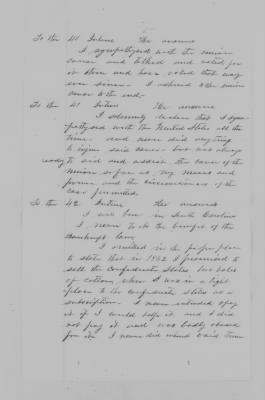 To the 41 Interr He answers
I sympathized with the union
cause and talked and voted for
it then and have voted that way
ever since. I adhered to the union
cause to the end.
To the 41 Interr He answers
I solemnly declare that I sym-
pathized with the United States all the
time. and never did anything
to injure said cause. but was always
ready to aid and assist the cause of the
Union so far as my means and
power and the circumstances of
the case permitted.
To the 42 Interr He answers
I was born in South Carolina
I never took the benefit of the
Bankrupt law.
I omitted in the proper place
to state that in 1862 I promised to
sell the Confederate States two bales
of cotton, when I was in a tight
place to the Confederate States as a
subscription. I never intended to pay
it if I could help it. and I did
not pay it and was badly abused
for it. I never did aid said